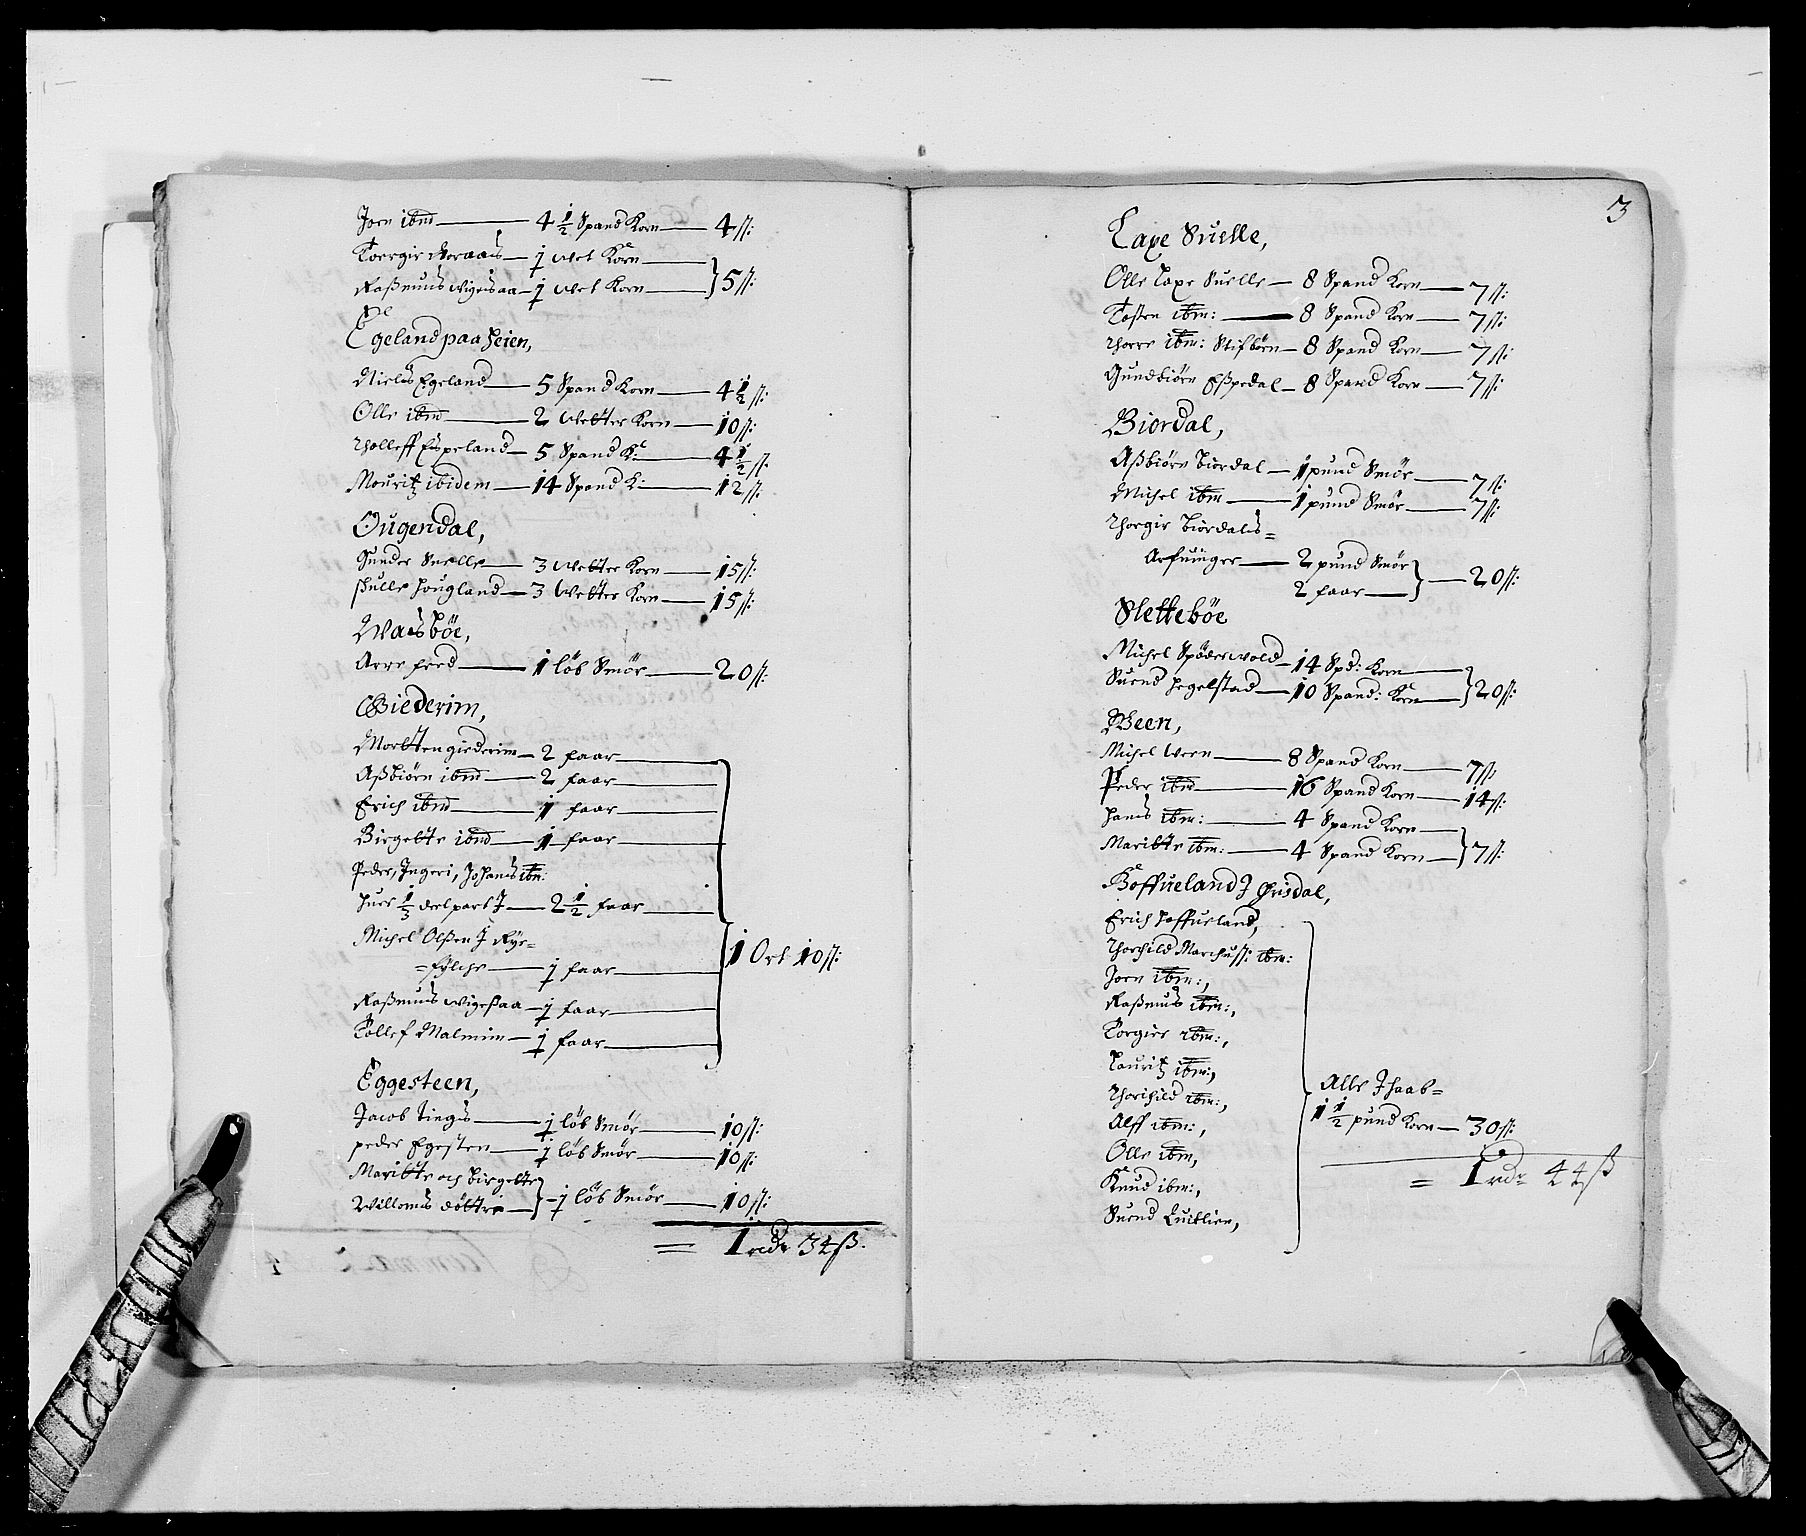 Joen ibm — 4 1/2 Spand Korn — 4 ß:
Torgir — 1 wet Korn —
Rasmus Wigesaa — 1 wet Korn — } 5 ß:
Egeland paa Heien,
Niels Egeland — 5 Spand Korn — 4 1/2 ß:
Olle ibm — 2 Wetter Korn — 10 ß:
Tholleff Espeland — 5 Spand K: — 4 1/2 ß:
Mouritz ibidem — 14 Spand K: — 12 ß:
Ougendal,
Gunder Suelle — 3 Wetter Korn — 15 ß:
Hougland — 3 Wetter Korn — 15 ß:
Waasbøe,
Aree — 1 løb Smør — 20 ß:
Giederim,
Mortten giederim — 2 faar —
Asbiørn ibm — 2 faar —
Erich ibm — 1 faar —
Birgette ibm — 1 faar —
Peder, Ingeri, Johans ibm:
huer 1/3 deelpart J — 2 1/2 faar —
Michel Olsen J Rye=
=fylche — 1 faar — } 1 Ort 10 ß:
Rasmus Wigesaa — 1 faar —
Tollef Malmim — 1 faar —
Eggesteen,
Jacob Tings — 1 løb Smør — 10 ß:
peder Egesten — 1 løb Smør — 10 ß:
Maritte och birgette
Willoms døttre — } 1 løb Smør — 10 ß:
= 1 rdr 34 ß.
3
Laxe Suelle,
Olle Laxe Suelle — 8 Spand Korn — 7 ß:
Tosten ibm: — 8 Spand Korn — 7 ß:
Thore ibm: Stifbørn — 8 Spand Korn — 7 ß:
Gundbiørn Espedal — 8 Spand Korn — 7 ß:
Biordal,
Asbiørn biordal — 1 pund Smør — 7 ß:
Michel ibm — 1 pund Smør — 7 ß:
Thorgir biordals=
Arfuinger — 2 pund Smør
2 faar — } — 20 ß:
Slettebøe
Michel Spøderwold — 14 Spd: Korn —
Suend Hegelstad — 10 Spand: Korn — } 20 ß:
Veen,
Michel Veen — 8 Spand Korn — 7 ß:
Peder ibm — 16 Spand Korn — 14 ß:
Hans ibm: — 4 Spand Korn —
Maritte ibm: — 4 Spand Korn — } 7 ß:
Høffueland J Ørsdal,
Erich Høffueland,
Thorchild Marchuss: ibm:
Joen ibm:,
Rasmus ibm:,
Torgier ibm:,
Lauritz ibm:,
Thorchild ibm:,
Alff ibm:,
Olle ibm,
Knud ibm:,
Suend Luitlien,
Alle Jhaab=
1 1/2 pund Korn — 30 ß:
= 1 rdr 44 ß